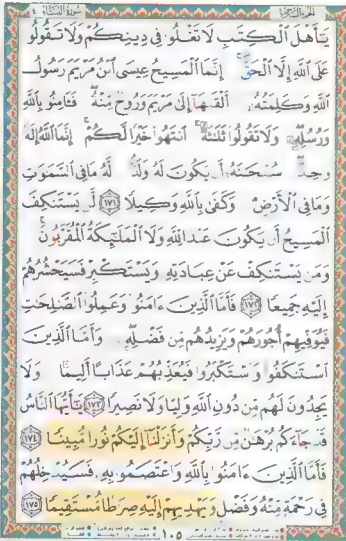 يَٰٓأَهْلَ ٱلْكِتَٰبِ لَا تَغْلُوا۟ فِى دِينِكُمْ وَلَا تَقُولُوا۟
عَلَى ٱللَّهِ إِلَّا ٱلْحَقَّ إِنَّمَا ٱلْمَسِيحُ عِيسَى ٱبْنُ مَرْيَمَ رَسُولُ
ٱللَّهِ وَكَلِمَتُهُۥٓ أَلْقَىٰهَآ إِلَىٰ مَرْيَمَ وَرُوحٌ مِّنْهُ فَـَٔامِنُوا۟ بِٱللَّهِ
وَرُسُلِهِۦ وَلَا تَقُولُوا۟ ثَلَٰثَةٌ ٱنتَهُوا۟ خَيْرًا لَّكُمْ إِنَّمَا ٱللَّهُ إِلَٰهٌ
وَٰحِدٌ سُبْحَٰنَهُۥٓ أَن يَكُونَ لَهُۥ وَلَدٌ لَّهُۥ مَا فِى ٱلسَّمَٰوَٰتِ
وَمَا فِى ٱلْأَرْضِ وَكَفَىٰ بِٱللَّهِ وَكِيلًا ١٧١ لَّن يَسْتَنكِفَ
ٱلْمَسِيحُ أَن يَكُونَ عَبْدًا لِّلَّهِ وَلَا ٱلْمَلَٰٓئِكَةُ ٱلْمُقَرَّبُونَ
وَمَن يَسْتَنكِفْ عَنْ عِبَادَتِهِۦ وَيَسْتَكْبِرْ فَسَيَحْشُرُهُمْ
إِلَيْهِ جَمِيعًا ١٧٢ فَأَمَّا ٱلَّذِينَ ءَامَنُوا۟ وَعَمِلُوا۟ ٱلصَّٰلِحَٰتِ
فَيُوَفِّيهِمْ أُجُورَهُمْ وَيَزِيدُهُم مِّن فَضْلِهِۦ وَأَمَّا ٱلَّذِينَ
ٱسْتَنكَفُوا۟ وَٱسْتَكْبَرُوا۟ فَيُعَذِّبُهُمْ عَذَابًا أَلِيمًا وَلَا
يَجِدُونَ لَهُم مِّن دُونِ ٱللَّهِ وَلِيًّا وَلَا نَصِيرًا ١٧٣ يَٰٓأَيُّهَا ٱلنَّاسُ
قَدْ جَآءَكُم بُرْهَٰنٌ مِّن رَّبِّكُمْ وَأَنزَلْنَآ إِلَيْكُمْ نُورًا مُّبِينًا ١٧٤
فَأَمَّا ٱلَّذِينَ ءَامَنُوا۟ بِٱللَّهِ وَٱعْتَصَمُوا۟ بِهِۦ فَسَيُدْخِلُهُمْ
فِى رَحْمَةٍ مِّنْهُ وَفَضْلٍ وَيَهْدِيهِمْ إِلَيْهِ صِرَٰطًا مُّسْتَقِيمًا ١٧٥
١٠٥